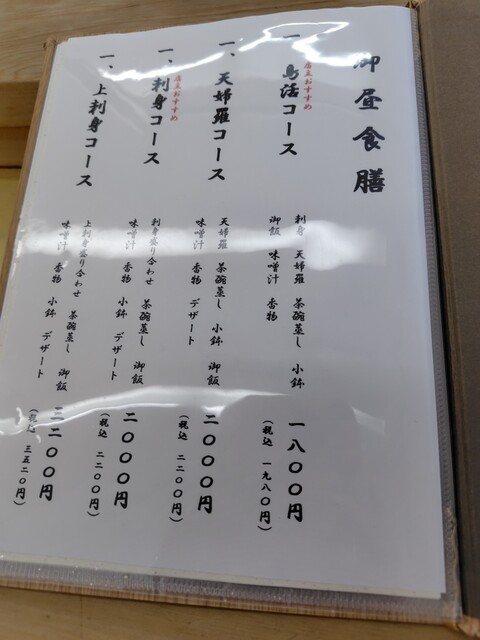 御昼食膳
一、鳥活コース
店主おすすめ
刺身 天婦羅 茶碗蒸し 小鉢
御飯 味噌汁 香物
一八〇〇円
(税込 一九八〇円)
一、天婦羅コース
天婦羅 茶碗蒸し 小鉢 御飯
味噌汁 香物 デザート
二〇〇〇円
(税込 二二〇〇円)
一、刺身コース
店主おすすめ
刺身盛り合わせ 茶碗蒸し 御飯
味噌汁 香物 小鉢 デザート
二〇〇〇円
(税込 二二〇〇円)
一、上刺身コース
上刺身盛り合わせ 茶碗蒸し 御飯
味噌汁 香物 小鉢 デザート
三二〇〇円
(税込 三五二〇円)